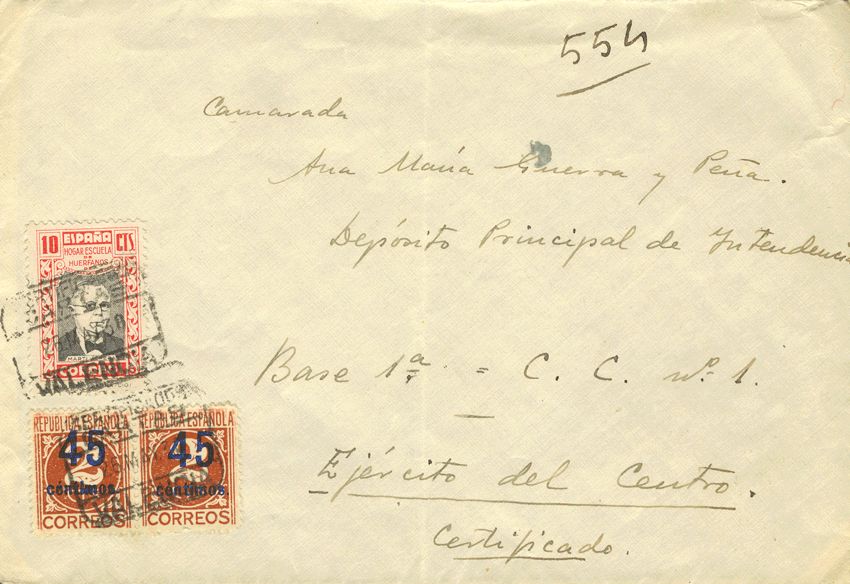 554
Camarada
Ana María Guerra y Peña.
Depósito Principal de Intendencia
Base 1ª = C. C. nº 1.
Ejército del Centro.
Certificado.
10 ESPAÑA CTS
HOGAR ESCUELA
DE
HUERFANOS
DE
CORREOS
VALENCIA
REPUBLICA ESPAÑOLA REPUBLICA ESPAÑOLA
45 45
2 2
céntimos. céntimos.
CORREOS CORREOS
VALENCIA